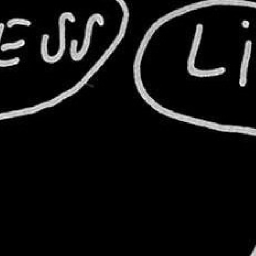 ESS Li